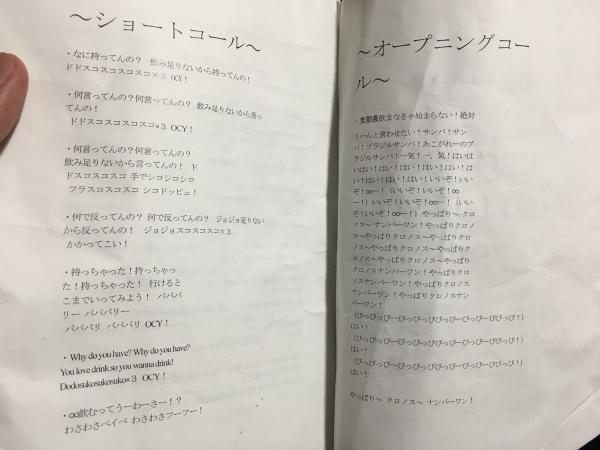 ～ショートコール～
・なに持ってんの？ 飲み足りないから持ってんの！
ドドスコスコスコスコ×３ OCY！
・何言ってんの？何言ってんの？ 飲み足りないから言っ
てんの！
ドドスコスコスコスコ×３ OCY！
・何言ってんの？何言ってんの？
飲み足りないから言ってんの！ ド
ドスコスコスコ 手でシコシコシコ
フラスコスコスコ シコドッピュ！
・何で反ってんの？ 何で反ってんの？ ジョジョ足りない
から反ってんの！ ジョジョスコスコスコ×３
かかってこい！
・持っちゃった！持っちゃっ
た！持っちゃった！ 行けると
こまでいってみよう！ パパパ
リー パパパリー
パパパリ パパパリ OCY！
・Why do you have? Why do you have?
You love drink so you wanna drink!
Dodosukosukosuko×３ OCY！
・∞飲むってうーわーさー！？
わさわさベイベ わさわさフーフー！
～オープニングコー
ル～
・支部長飲まなきゃ始まらない！絶対
うーんと言わせたい！サンバ！サン
バ！ブラジルサンバ！あこがれーのブ
ラジルサンバ！一気！一、気！はいは
いはい！はい！はい！はい！はい！は
い！はい！はい！はい！いいぞ！いい
ぞ！∞ー！（いいぞ！いいぞ！∞
ー！）いいぞ！いいぞ！∞ー！（いい
ぞ！いいぞ！∞ー！）やっぱり～ クロ
ノス～ ナンバーワン！やっぱりクロノ
ス～やっぱりクロノス～やっぱりクロ
ノス～やっぱりクロノス～やっぱりク
ロノス～やっぱりクロノス～やっぱり
クロノスナンバーワン！やっぱりクロ
ノスナンバーワン！やっぱりクロノス
ナンバーワン！やっぱりクロノスナン
バーワン！
（ぴっぴっぴーぴっぴっぴぴっぴーぴっぴーぴぴっぴ！）
はい！
（ぴっぴっぴーぴっぴっぴぴっぴーぴっぴーぴぴっぴ！）
はい！
（ぴっぴっぴーぴっぴっぴぴっぴーぴっぴーぴぴっぴ！）
はい！
やっぱり～ クロノス～ ナンバーワン！